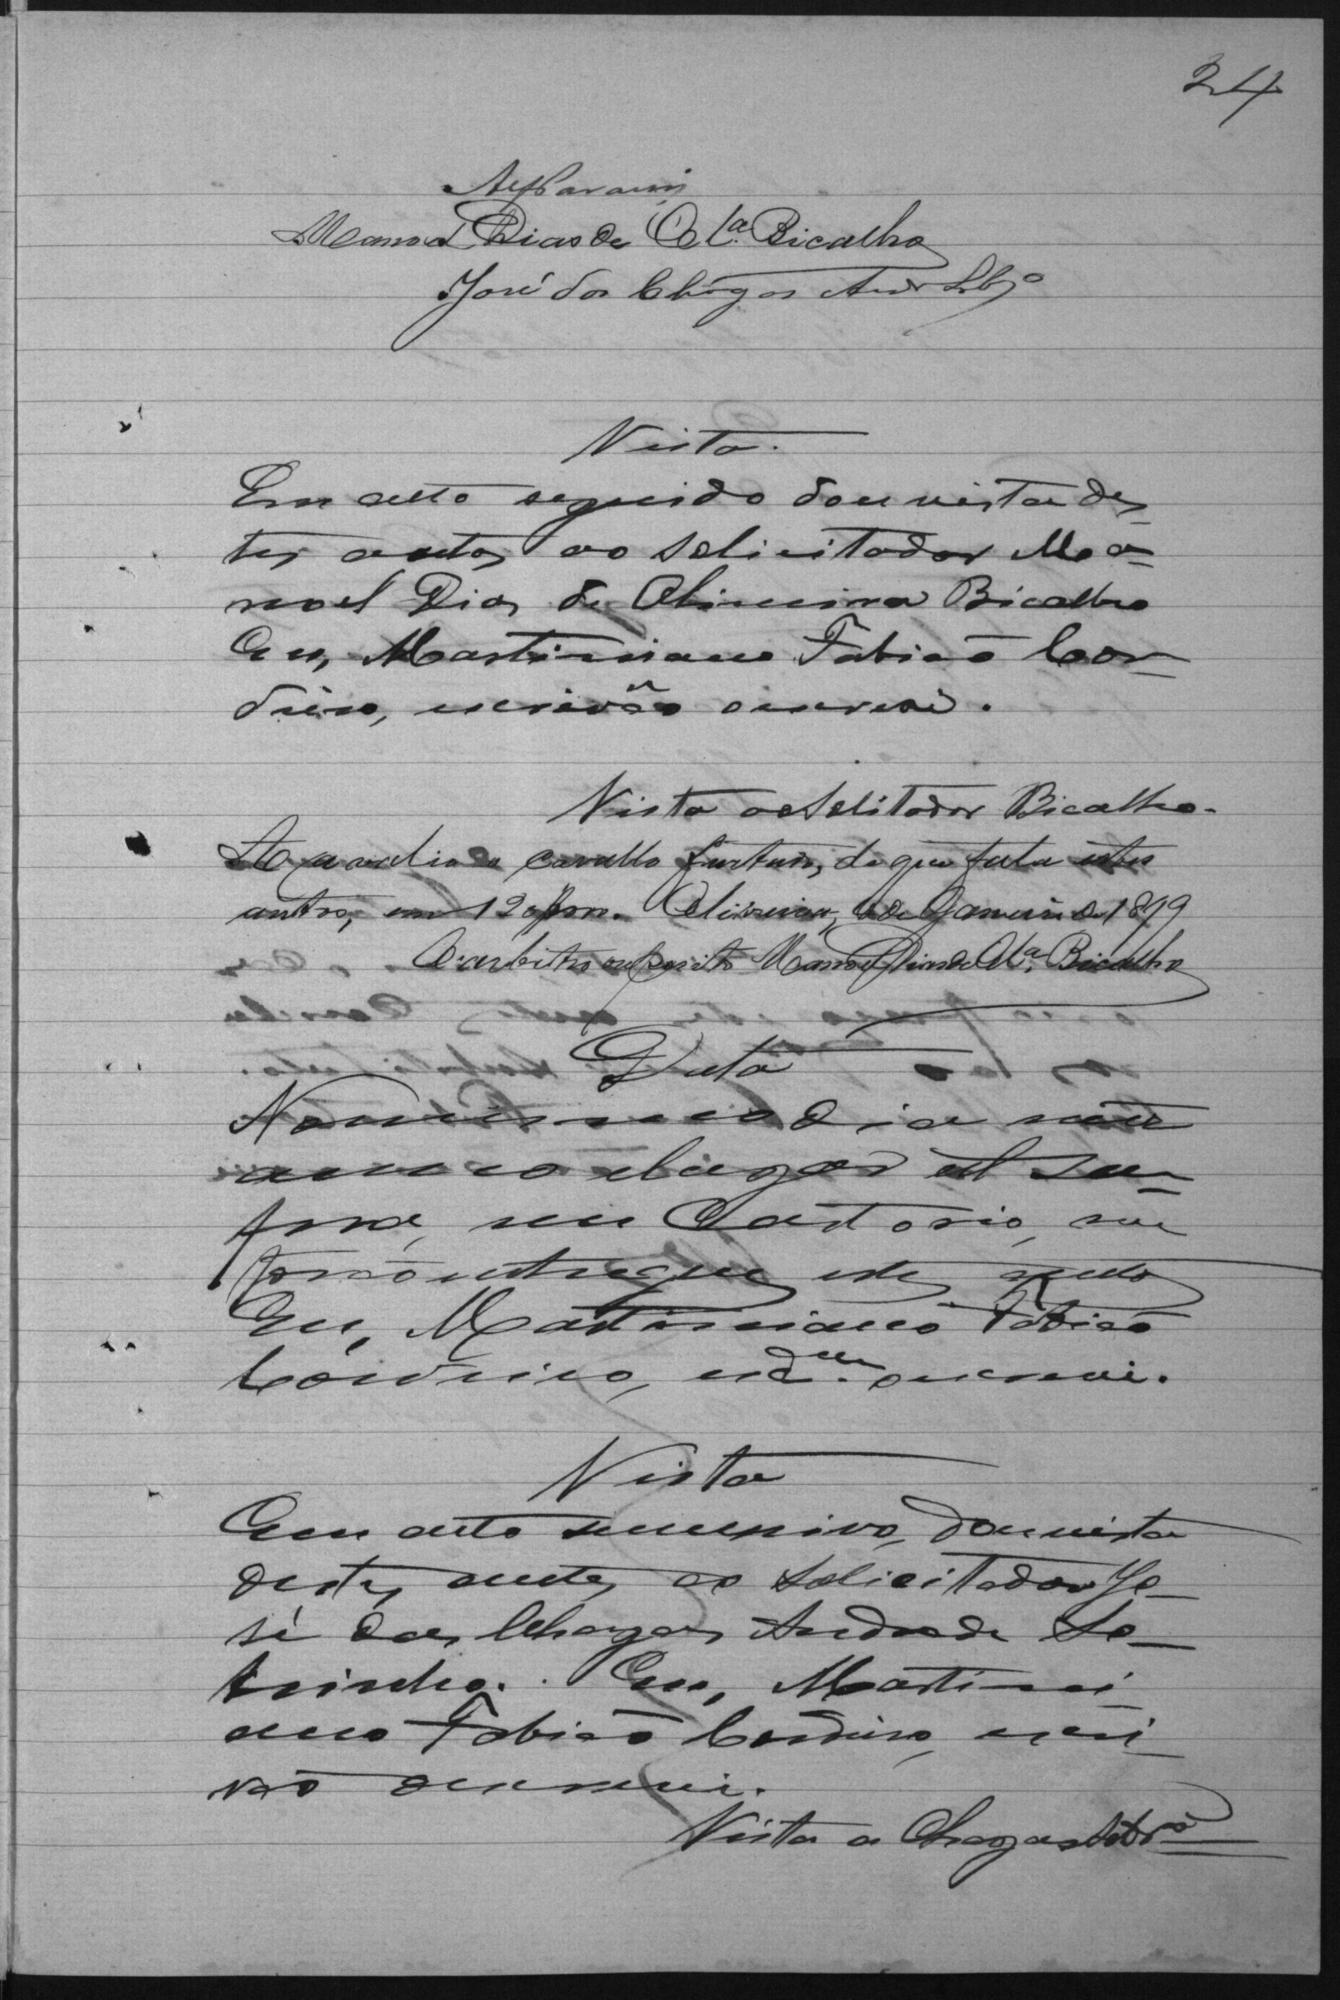 24
Manoel Dias de Olª. Bicalho
José das Chagas Andr Sbrº
Vista.
Em acto seguido dou vista des-
tes autos ao solicitador Ma-
noel Dias de Oliveira Bicalho
Eu, Martiniano Fabião Cor-
deiro, escrivão o escrevi.
Vista ao Solitador Bicalho.
avalio o cavallo furtado, de que fala estes
autos, em Oliveira, de Janeiro de 1899
O arbitro ou perito Manoel Dias de Olª. Bicalho
Data
No mesmo dia mez
anno e lugar al su-
pra, em Cartorio, me
forão entregues estes autos
Eu, Martiniano Fabião
Cordeiro, escrm. o escrevi.
Vista
Em acto successivo, dou vista
destes autos ao solicitador Jo-
sé das Chagas Andrade So-
brinho. Eu, Martini-
ano Fabião Cordeiro, escri-
vão o escrevi.
Vista a Chagas Sobrº